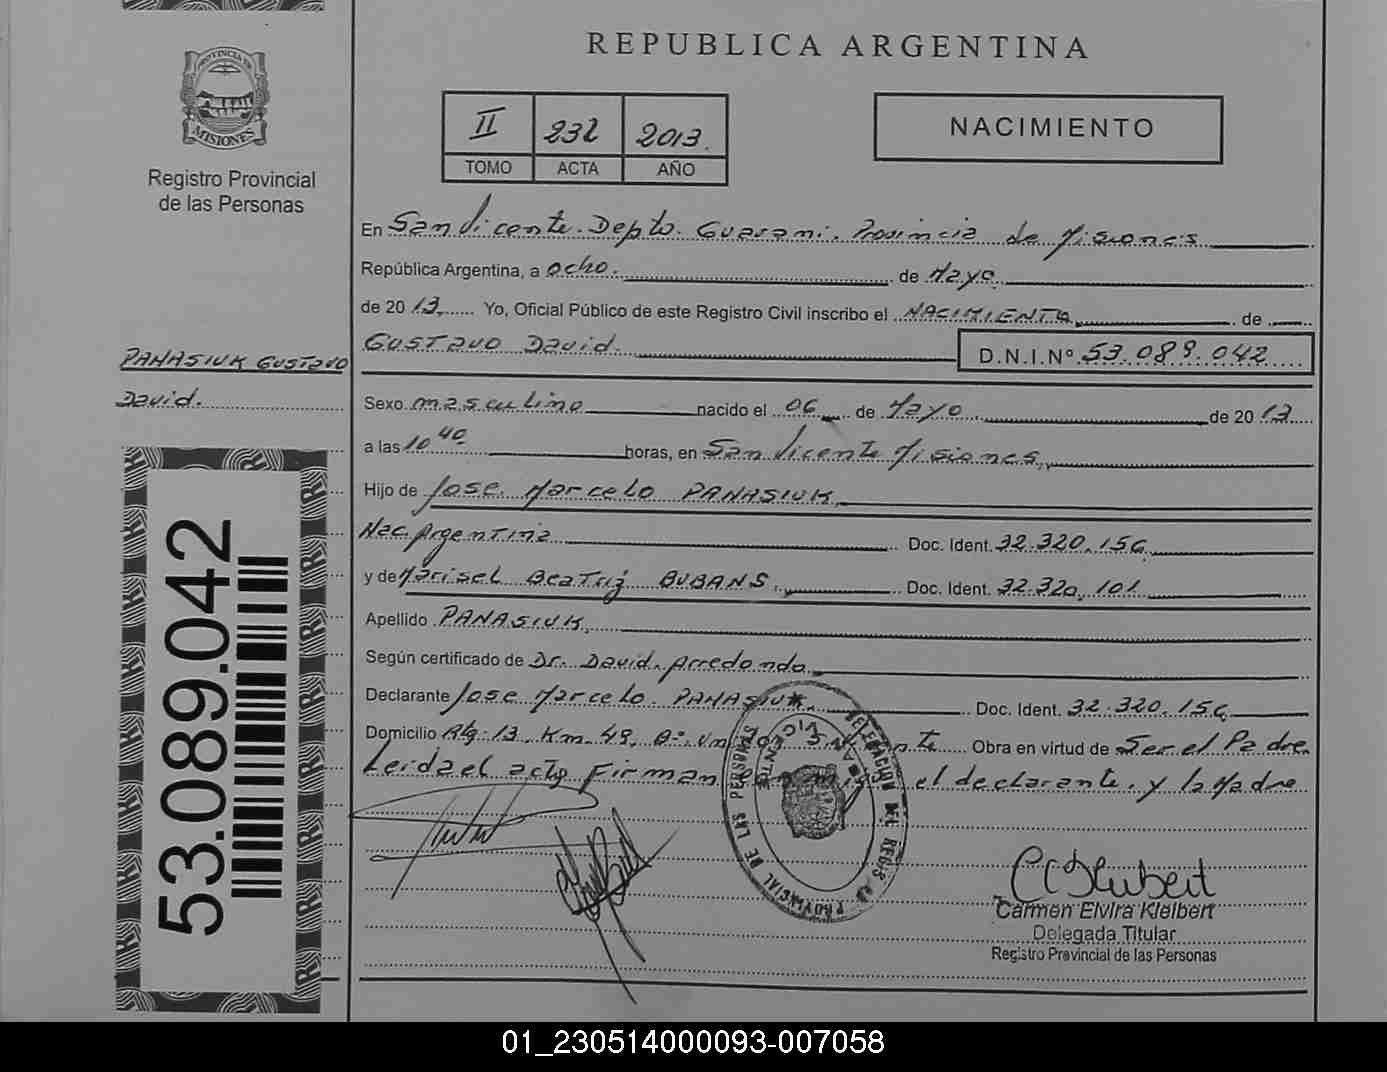 REPUBLICA ARGENTINA
PROVINCIA DE
MISIONES
Registro Provincial
de las Personas
II 232 2013.
TOMO ACTA AÑO
NACIMIENTO
En San Vicente. Depto. Guarani. Provincia de Misiones
República Argentina, a ocho. de Mayo
de 2013. Yo, Oficial Público de este Registro Civil inscribo el NACIMIENTO de
GUSTAVO David. D.N.I.Nº 53.089.042
PANASIUK GUSTAVO
David.
Sexo masculino nacido el 06 de Mayo de 2013
a las 10 40 horas, en San Vicente Misiones,
Hijo de Jose Marcelo PANASIUK
Nac. Argentina Doc. Ident. 32.320.156
y de Marisel Beatriz BUBANS. Doc. Ident. 32.320.101
Apellido PANASIUK
Según certificado de Dr. David Arredondo
Declarante Jose Marcelo. PANASIUK. Doc. Ident. 32.320.156
Domicilio Rta. 13. Km. 49. Bº. Obra en virtud de Ser el Padre
Leida el acta Firman el declarante y la Madre
53.089.042
DELEGACION DEL REGIS PROVINCIAL DE LAS PERSONAS
SAN VICENTE
Carmen Elvira Kleibert
Delegada Titular
Registro Provincial de las Personas
01_230514000093-007058